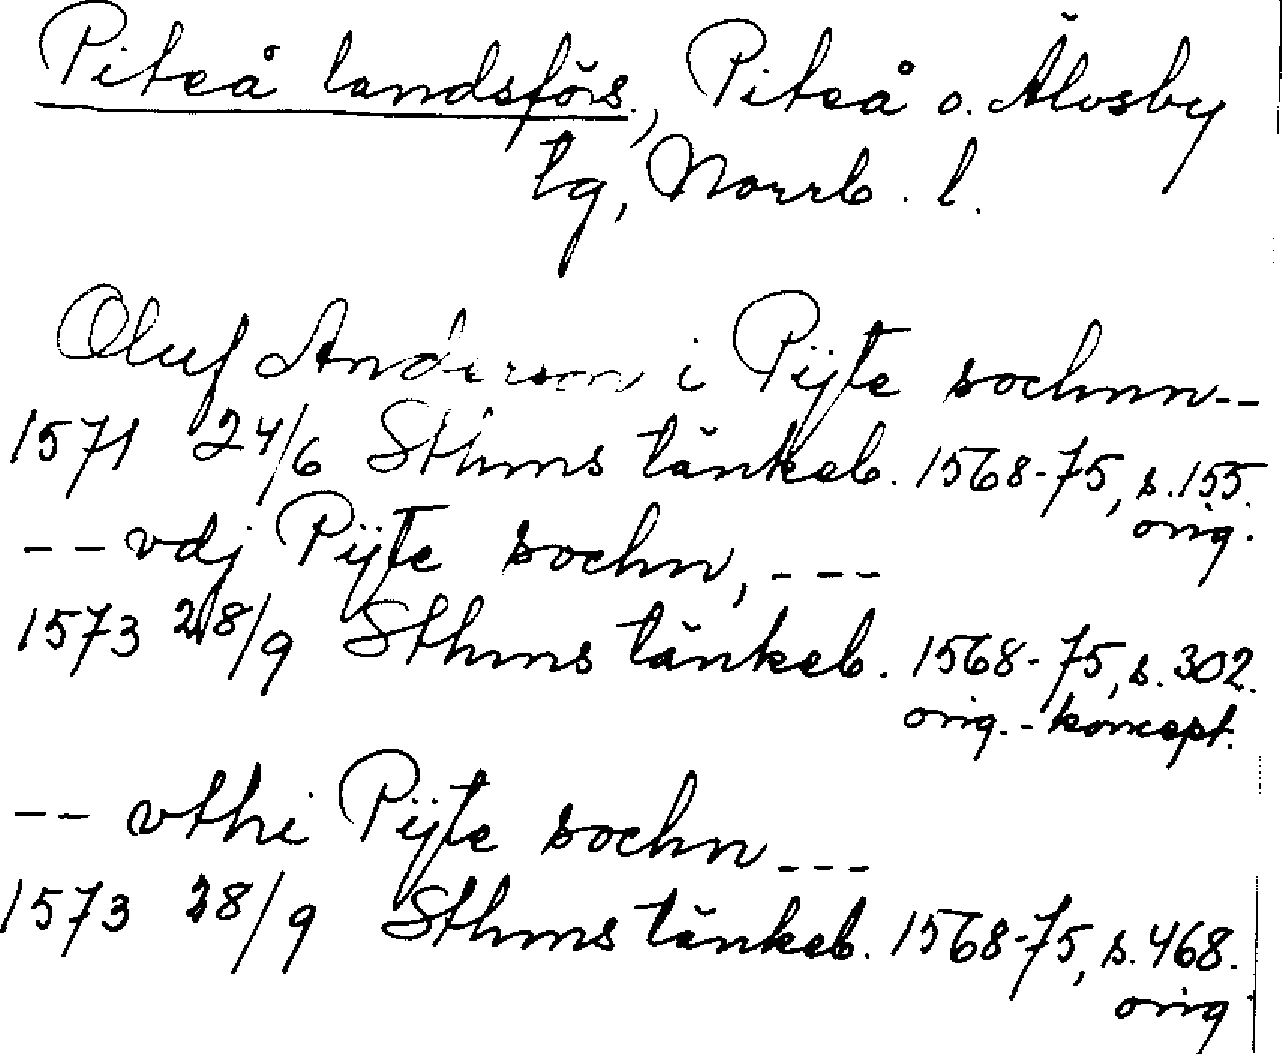 Piteå landsförs., Piteå o. Älvsby
tg, Norrb. l.
Oluf Anderson i Pijte sochnn--
1571 24/6 Sthms tänkeb. 1568-75, s. 155.
orig.
-- vdj Pijte sochn, ---
1573 28/9 Sthms tänkeb. 1568-75, s. 302.
orig.-koncept.
-- vthi Pijte sochn ---
1573 28/9 Sthms tänkeb. 1568-75, s. 468.
orig.